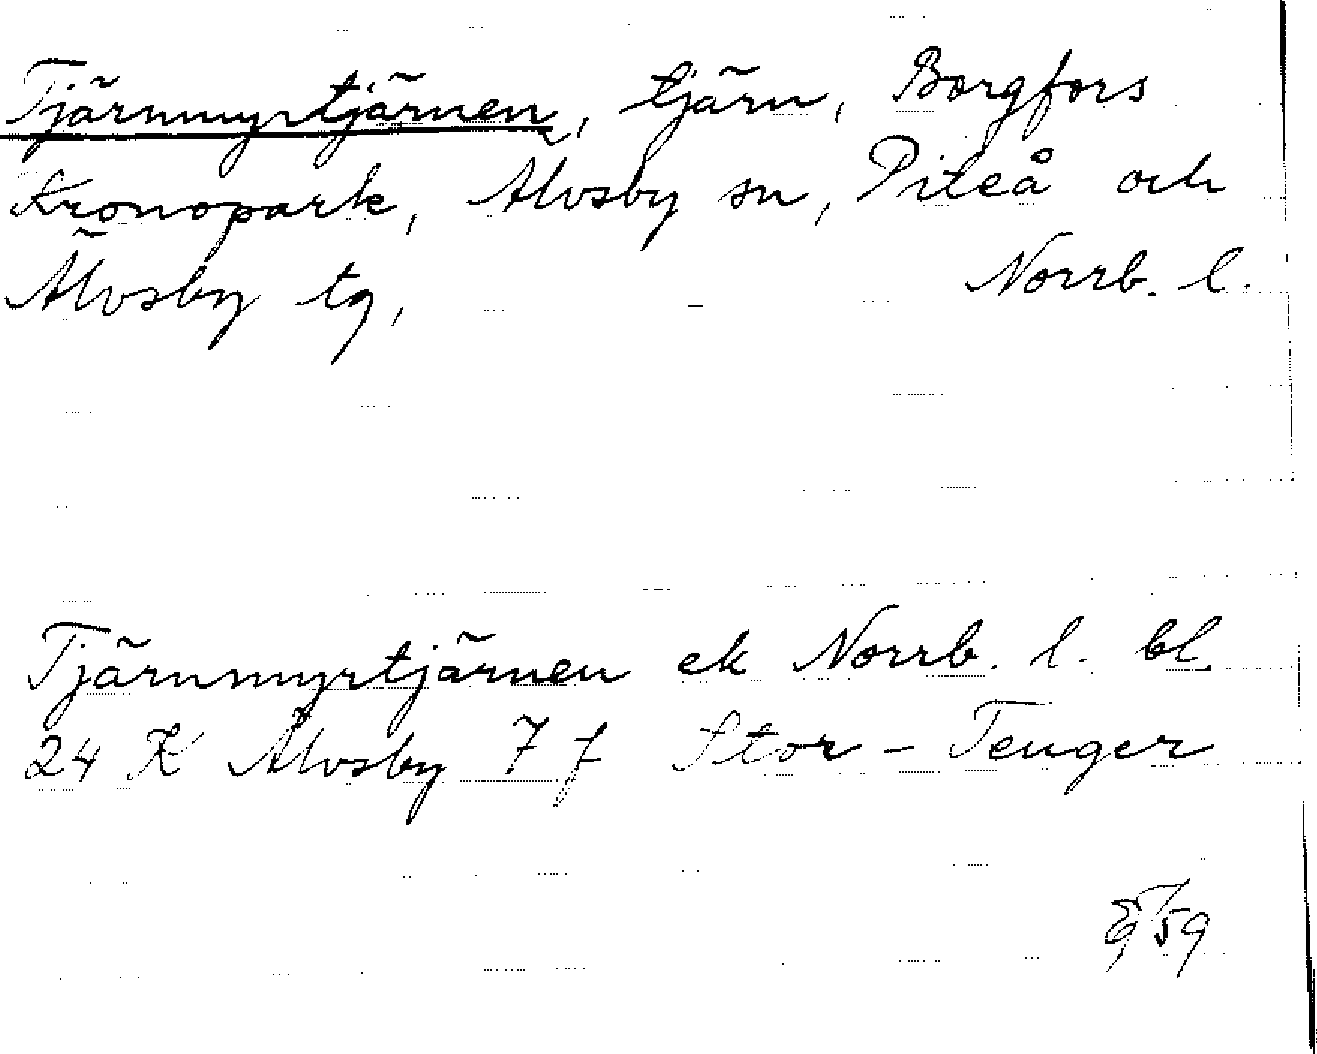 Tjärnmyrtjärnen, tjärn, Borgfors
Kronopark, Älvsby sn, Piteå och
Älvsby tg, Norrb. l.
Tjärnmyrtjärnen ek Norrb. l. bl.
24 K Älvsby 7 f Stor-Teuger
59